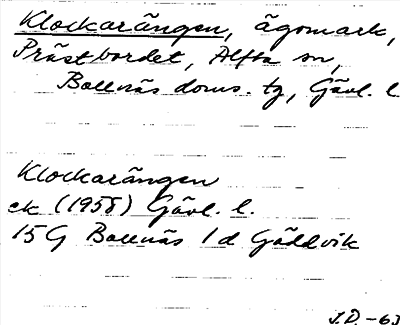 Klockarängen, ägomark,
Prästbordet, Alfta sn,
Bollnäs doms. tg, Gävl. l
Klockarängen
ek (1958) Gävl. l.
15G Bollnäs 1d Gäddvik
J.D. -63